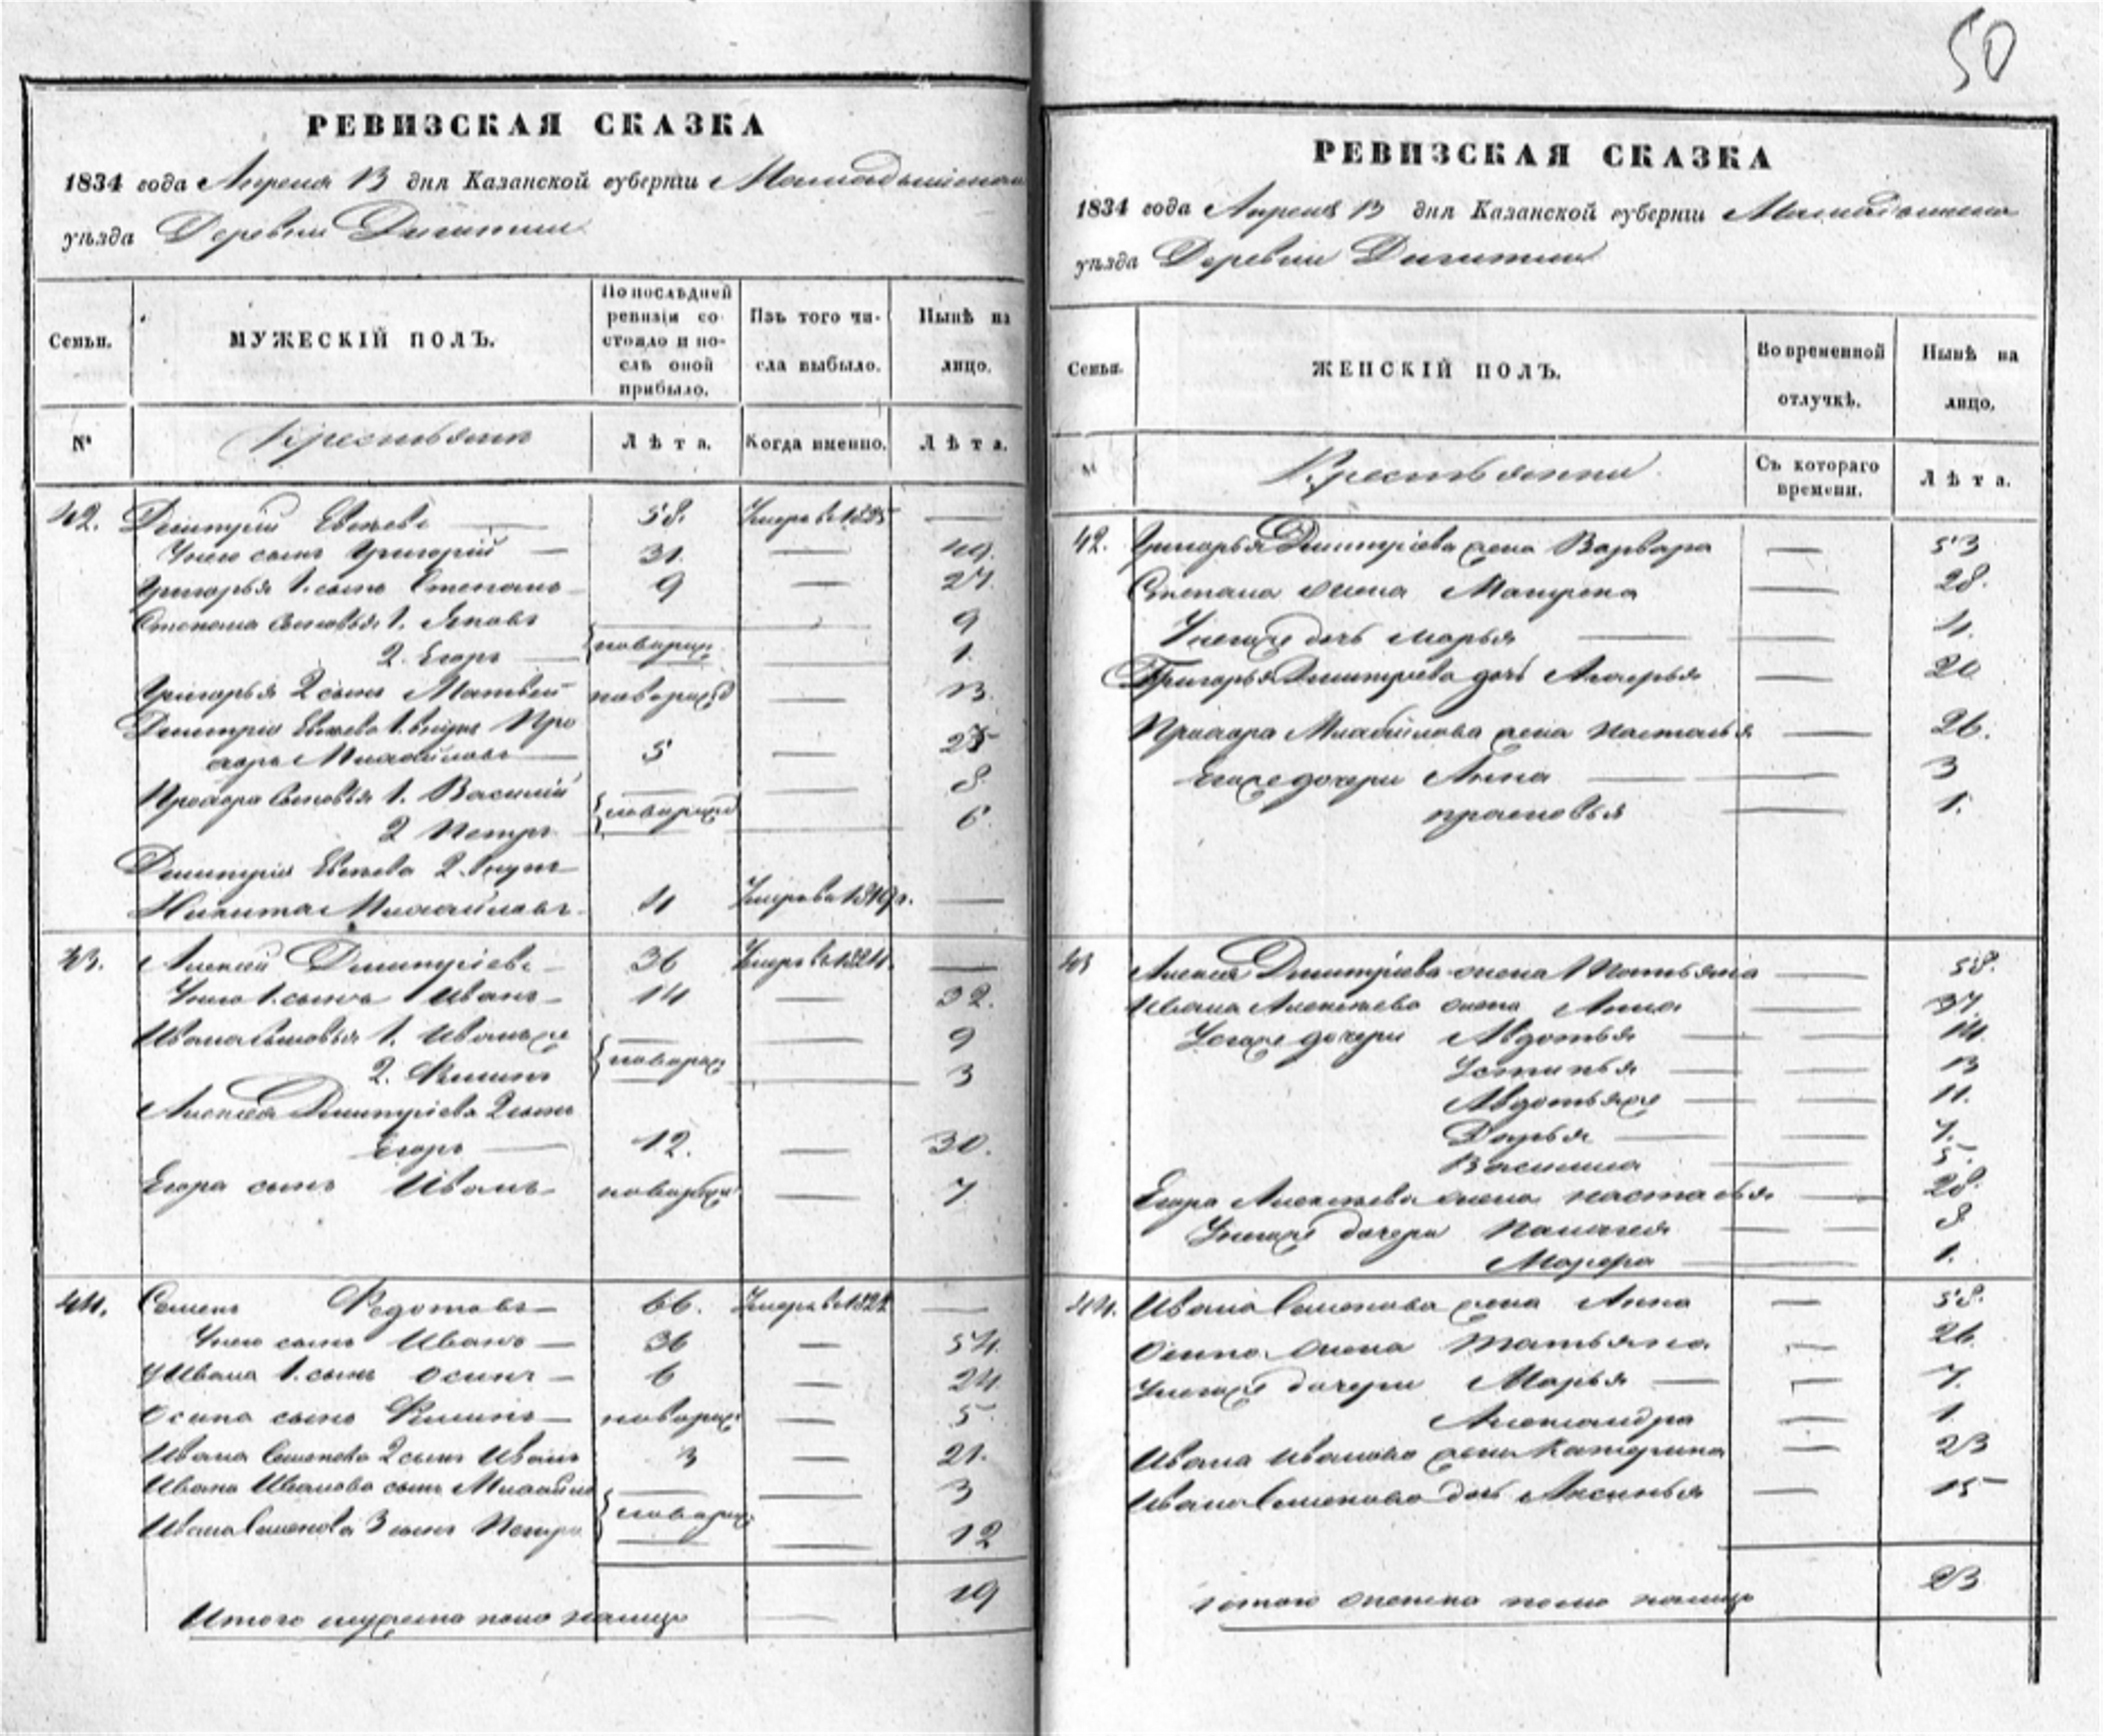 50
РЕВИЗСКАЯ СКАЗКА
1834 года Апреля 13 дня Казанской губернiи
уѣзда Деревни
Семьи.
МУЖЕСКІЙ ПОЛЪ.
По послѣдней ревизiи состояло и послѣ оной прибыло.
Изъ того числа выбыло.
Нынѣ на лицо.
№
Крестьяне
Лѣта.
Когда именно.
Лѣта.
42. Дмитрий Евсеевъ — 58. Умеръ въ 1825 —
У него сынъ Григорій — 31. — 49.
Григорья 1. сынъ Степанъ 9 — 27.
Степана сыновья 1. Яковъ — — 9
2. Егоръ — новорож. — 1.
Григорья 2 сынъ Матвей новорожд — 13.
Дмитрия Евсеева 1. внукъ Про
хоръ Михайловъ — 5 — 23
Прохора сыновья 1. Василий — — 8.
2 Петръ новорожд — 6.
Дмитрия Евсеева 2. внукъ
Никита Михайловъ. 4 Умеръ въ 1819 г. —
43. Алексей Дмитріевъ 36 Умеръ въ 1824. —
У него 1. сынъ Иванъ 14 — 32.
Ивана сыновья 1. Иванъ же — — 9
2. Филипъ новорож — 3
Алексея Дмитріева 2 сынъ
Егоръ — 12. — 30.
Егора сынъ Иванъ новорож — 7
44. Семенъ Федотовъ 66. Умеръ въ —
У него сынъ Иванъ — 36 — 54.
У Ивана 1. сынъ Осипъ — 6 — 24.
Осипа сынъ Филипъ — новорож — 5
Ивана Семенова 2 сынъ Иванъ 3 — 21.
Ивана Иванова сынъ Михайло — — 3
Ивана Семенова 3 сынъ Петръ новорож — 12
Итого мужеска пола налицо — 19
РЕВИЗСКАЯ СКАЗКА
1834 года Апреля 13 дня Казанской губернiи
уѣзда Деревни
Семьи.
ЖЕНСКІЙ ПОЛЪ.
Во временной отлучкѣ.
Нынѣ на лицо.
Крестьянки
Съ котораго времени.
Лѣта.
42. Григорья Дмитріева жена Варвара — 53
Степана жена Матрена — 28.
У нихъ же дочь Марья — — 4.
Григорья Дмитріева дочь — 20
Прохора Михайлова жена Настасья — 26.
дочери Анна — — 3
Прасковья — 1.
43 Алексея Дмитріева жена Татьяна — 58.
Ивана Алексеева жена Анна — 37.
дочери Авдотья — — 14.
Устинья — — 13
Авдотья же — — 11.
Дарья — — 7.
Василиса — 5.
Егора Алексеева жена Настасья — 28.
У нихъ же дочери Палагея — — 8
Марфа — — 1.
44. Ивана Семенова жена Анна — 58.
Осипа жена Татьяна — 26.
У нихъ же дочери Марья — — 7.
Александра — 1
Ивана Иванова жена Катерина — 23
Ивана Семенова дочь Аксинья — 15
Итого женска пола налицо 23